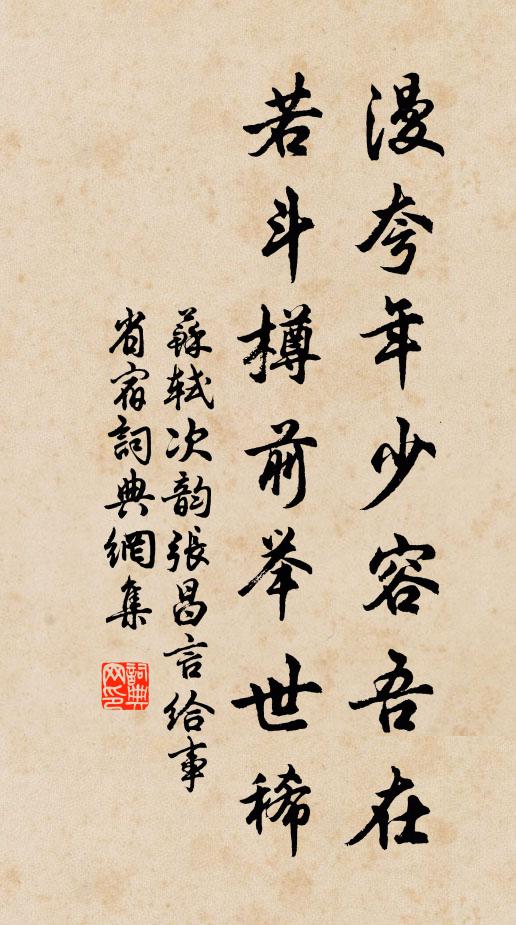 漫夸年少容吾在
若斗樽前举世稀
蘇軾次韵張昌言给事
省宿詞典網集
詞典网印